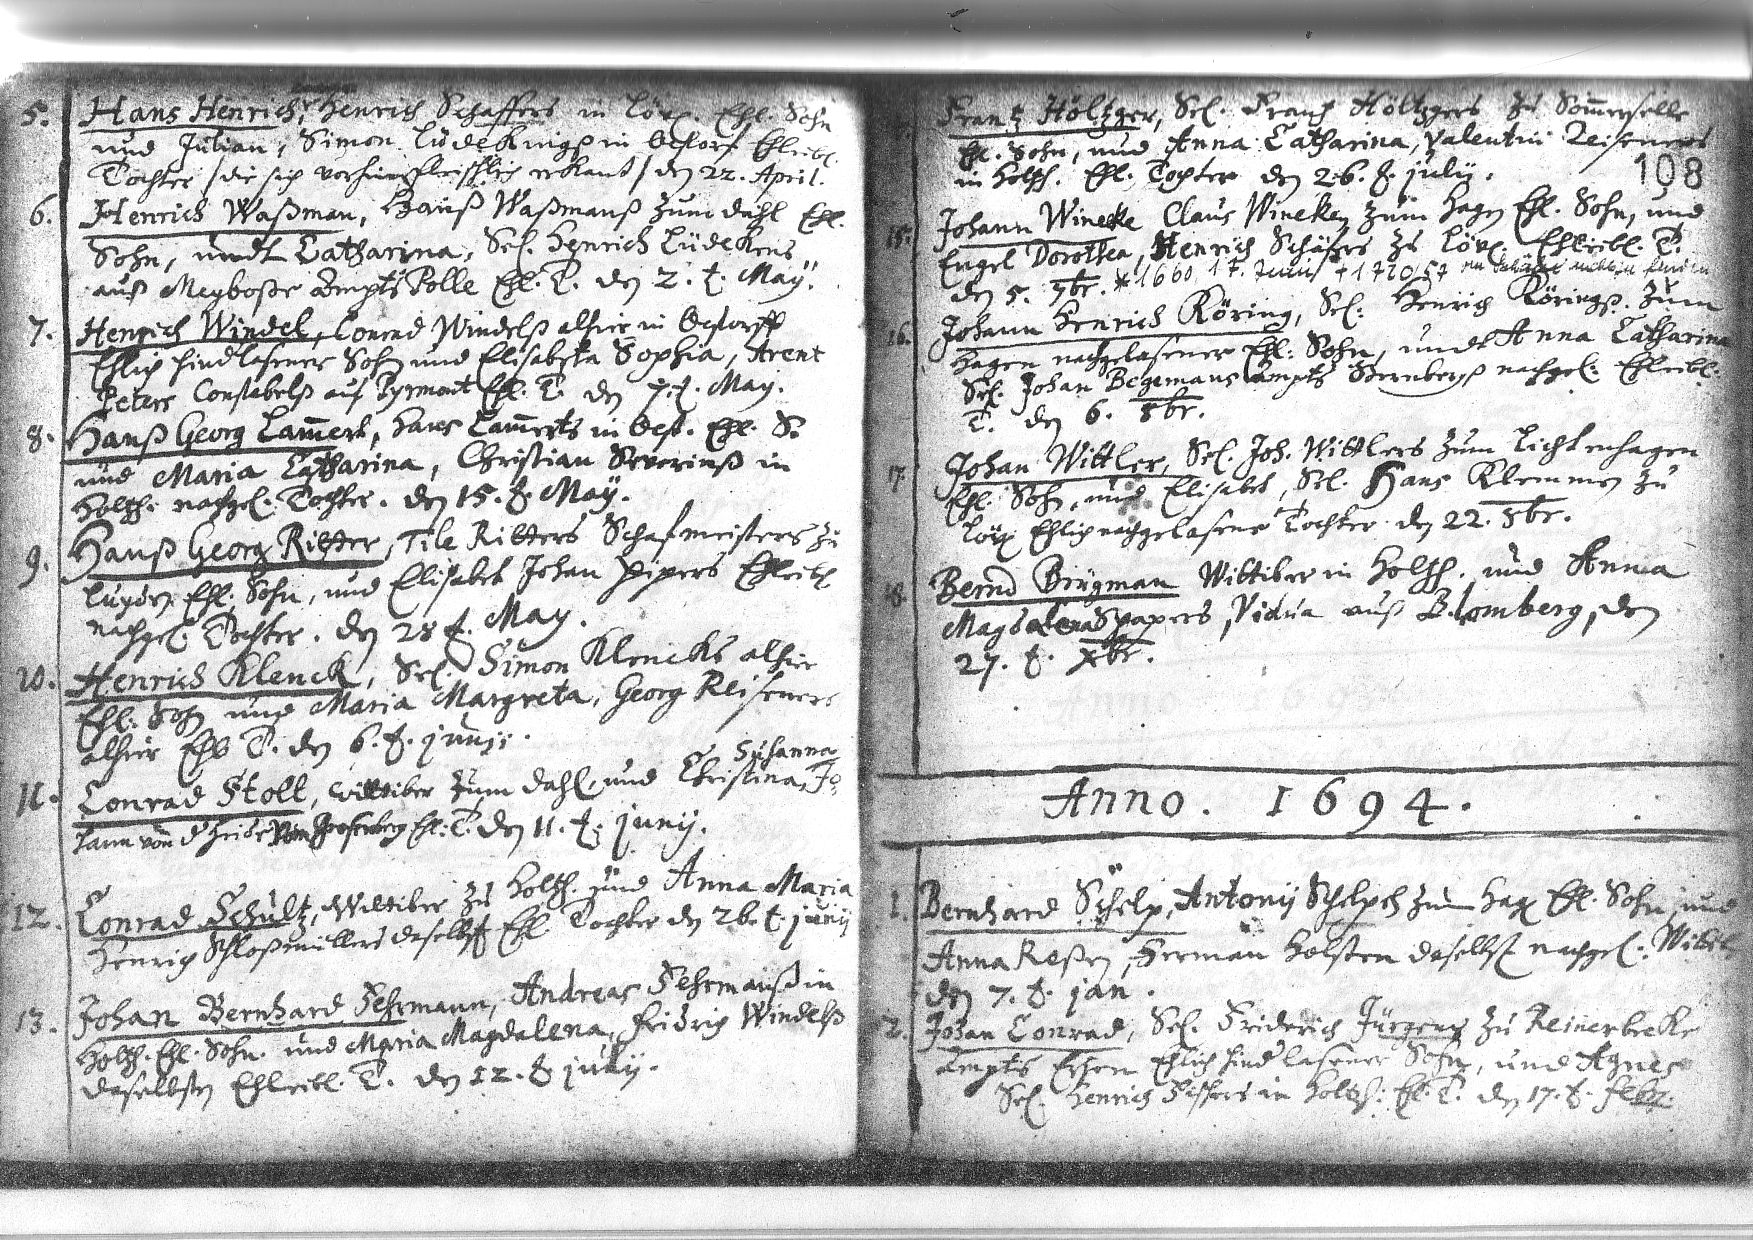 5. Hans Henrich, Henrich Schaffers in Löw. Ehl. Sohn
und Julian, Simon Lüdekings in Oestorf Ehleibl.
Tochter / die sich vorhin fleischlich erkant / den 22. April.
6. Henrich Waßman, Hanß Waßmanß zum dahl Ehl.
Sohn, undt Catharina, Sel. Henrich Lüdekens
auß Meyboße Ampts Polle Ehl. T. den 2. t. May.
7. Henrich Windel, Conrad Windelß alhier in Oestorff
Ehlich hinderlasener Sohn und Elisabeta Sophia, Arent
Peters Constabelß auf Pyrmont Ehl. T. den 7. t. May.
8. Hanß Georg Lam̄ert, Hans Lam̄erts in Oest. Ehl. S.
und Maria Catharina, Christian Severinß in
Holtzh. nachgel. Tochter. den 15. t. May.
9. Hanß Georg Ritter, Tile Ritters Schafmeisters zu
Lügden Ehl. Sohn, und Elisabet Johan Pipers Ehleibl.
nachgel. Tochter. den 28 t. May.
10. Henrich Klenck, Sel. Simon Klencks alhier
Ehl. Sohn und Maria Margreta, Georg Reiseners
alhier Ehl. T. den 6. t. junii.
Susanna
11. Conrad Stolt, Wittiber zum dahl, und Christina, Jo
hann von d Heide vom Ehl. T. den 11. t. junij.
12. Conrad Schultz, Wittiber zu Holtzh. und Anna Maria
Henrich Schloßmüllers daselbst Ehl. Tochter den 26 t. junij
13. Johan Bernhard Fehrmann, Andreas Fehrmanß in
Holtzh. Ehl. Sohn. und Maria Magdalena, Fridrich Windelß
daselbsten Ehleibl. T. den 12. t. julij.
Frantz Höltzger, Sel. Frantz Höltzgers zu Som̄erselle
Ehl. Sohn, und Anna Catharina, Valentin Reiseners
in Holtzh. Ehl. Tochter den 26. t. julij.
108
15. Johann Wineke Claus Wineken zum Hagen Ehl. Sohn, und
Engel Dorothea, Henrich Schäfers zu Löw. Ehleibl. T.
den 5. 7br. * 1660 17. Junii † 1720
16. Johann Henrich Köring, Sel. Henrich Körings zum
Hagen nachgelasener Ehl. Sohn, undt Anna Catharina
Sel. Johan Begemans Ampts Sternberg nachgel. Ehleibl.
T. den 6. 8br.
17. Johan Wittler, Sel. Joh. Wittlers zum Lichtenhagen
Ehl. Sohn, und Elisabet, Sel. Hans Klemmen zu
Löw. Ehlich nachgelasene Tochter den 22. 8br.
18. Bernd Brügman Wittiber in Holtzh. und Anna
Magdalena Papers, Vidua auß Blomberg, den
27. t. xbr.
Anno. 1694.
1. Bernhard Schelp, Antonij Schelpen zum Hagen Ehl. Sohn, und
Anna Reßen, Herman Holsten daselbst nachgel. Witib
den 7. t. jan.
2. Johan Conrad, Sel. Friderich Jürgens zu Reinerbeke
Ampts Ertzen Ehlich hinderlasener Sohn, und Agnes
Sel. Henrich Fischers in Holtzh. Ehl. T. den 17. t. febr.